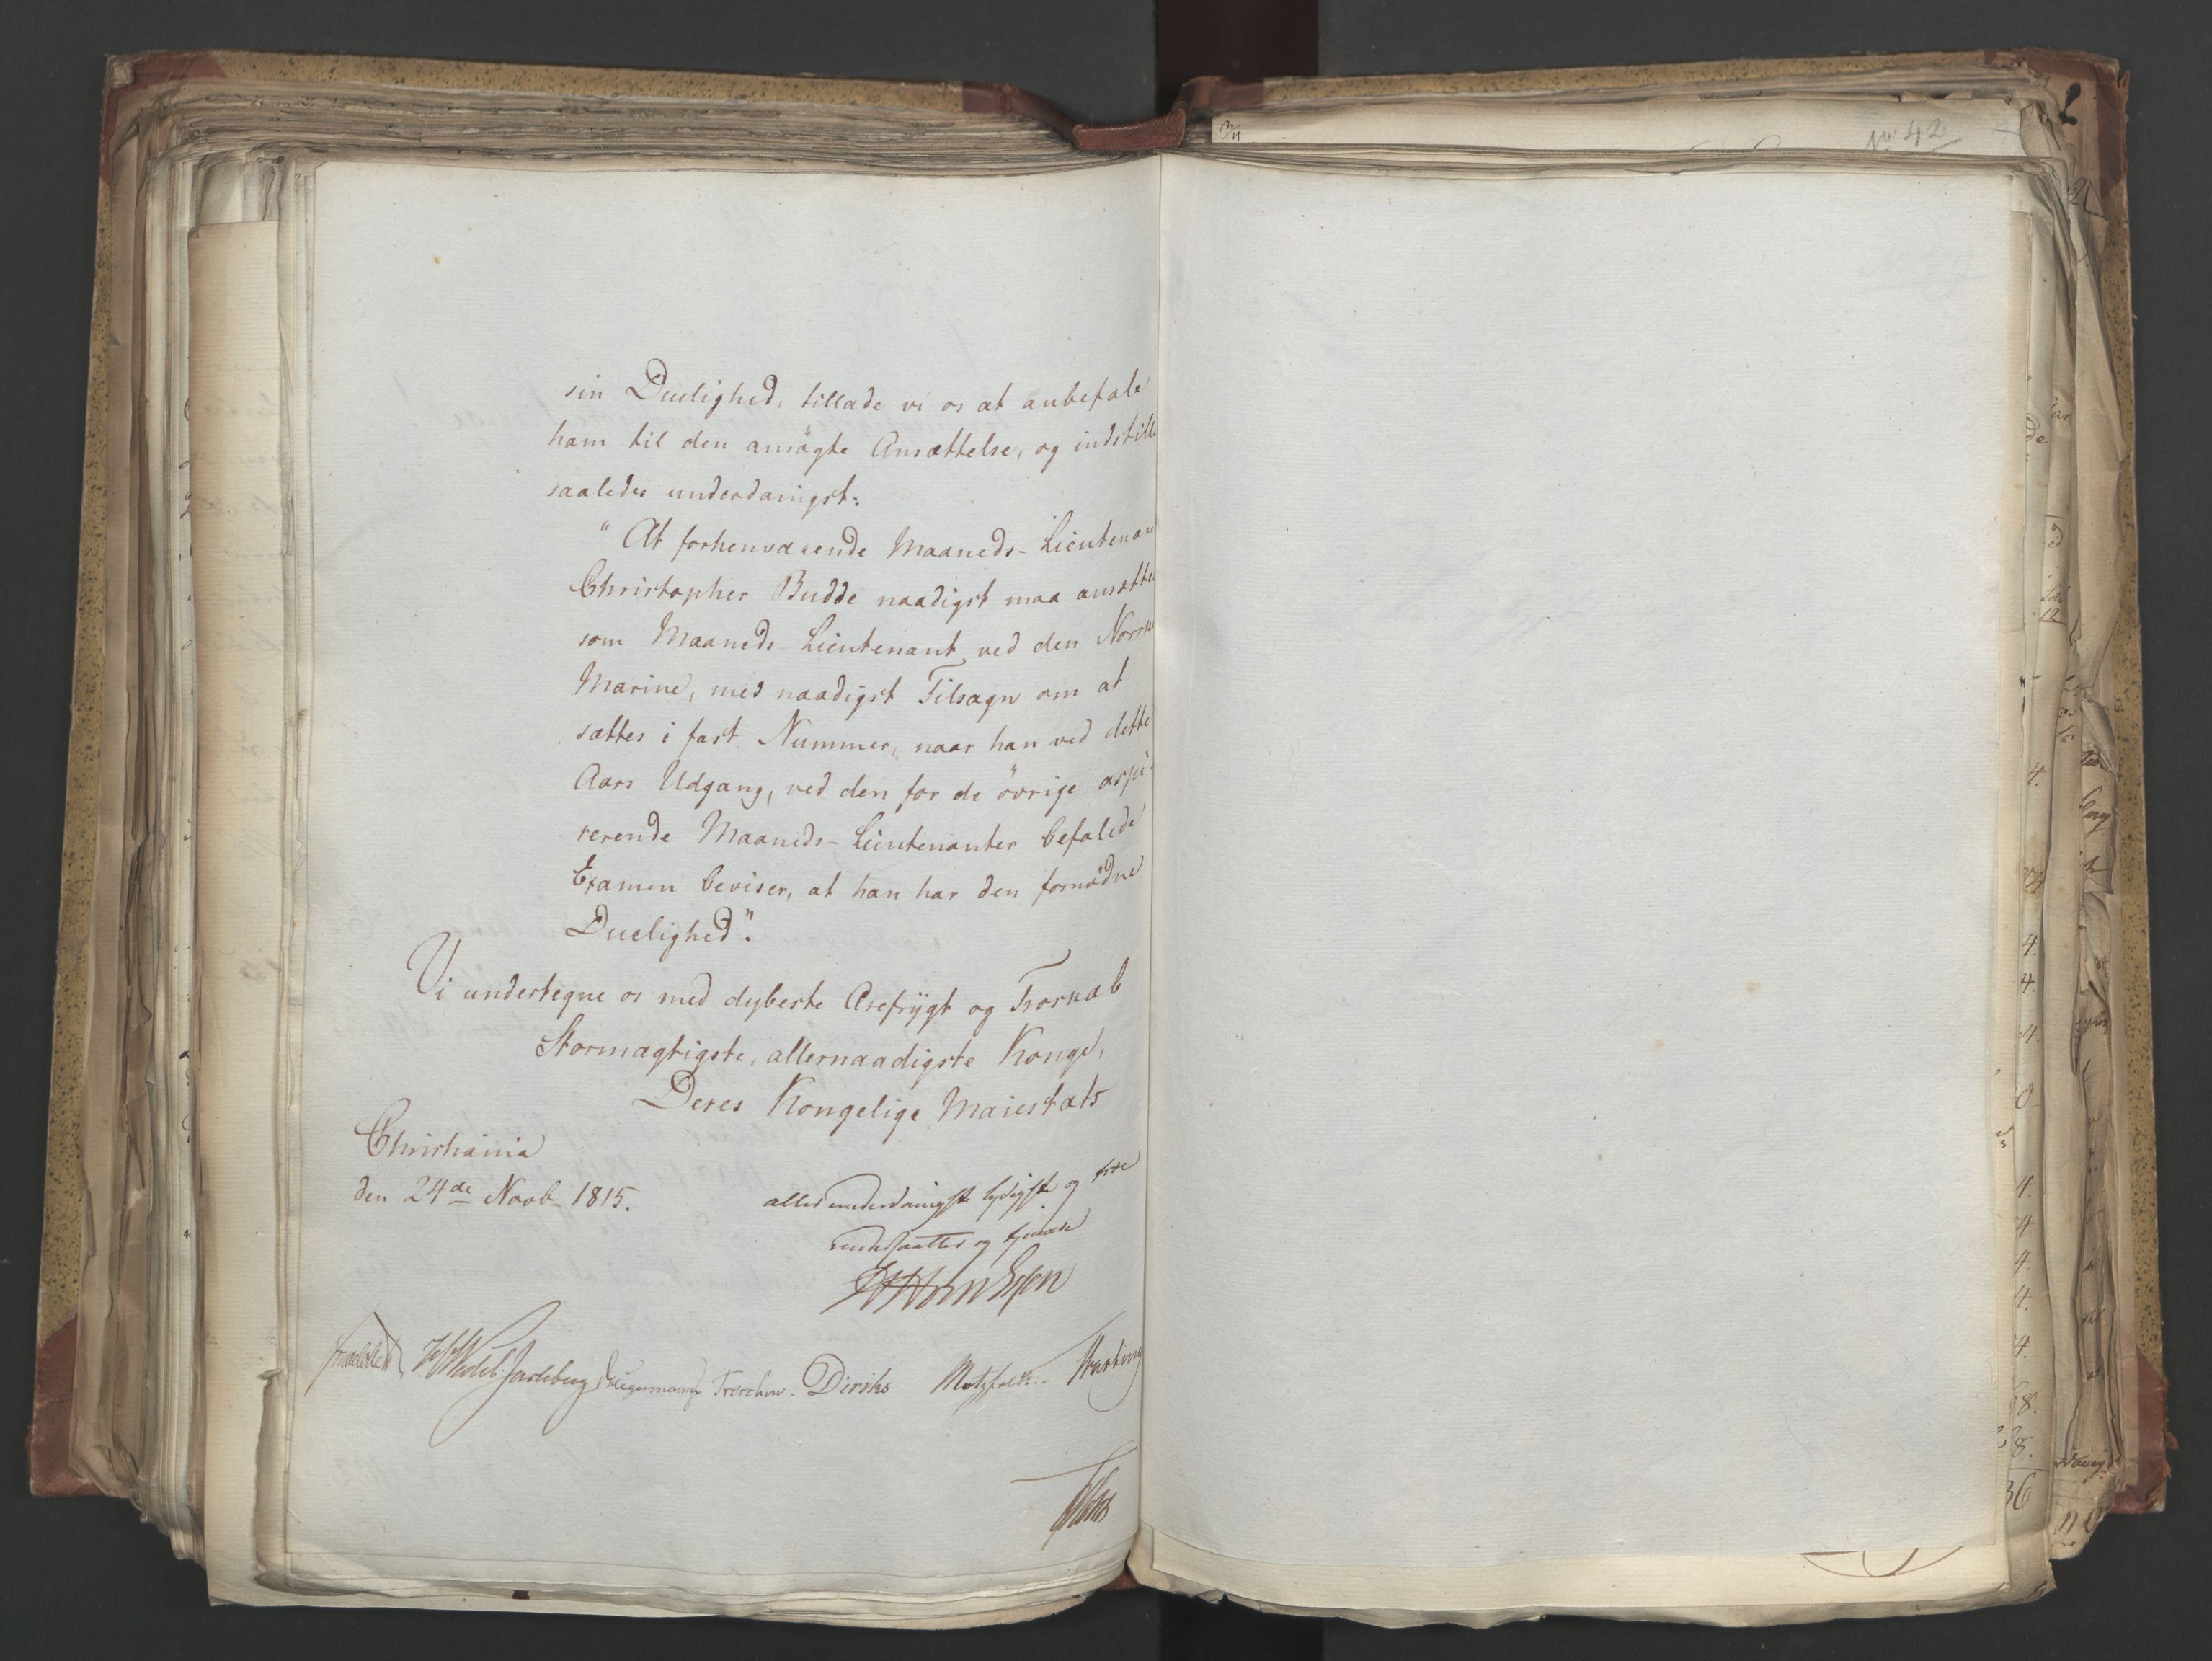 sin Duelighed, tillade vi os at anbefale
ham til den ansøgte Ansættelse, og indstille
saaledes underdanigst:
" At forhenværende Maaneds-Lieutenan
Christopher Budde naadigst maa ansættes
som Maaneds-Lieutenant ved den Norske
Marine, med naadigst Tilsagn om at
sættes i fast Nummer, naar han ved dette
Aars Udgang, ved den for de övrige aspi-
rerende Maaneds-Lieutenanter befalede
Examen beviser, at han har den fornödne
Duelighed".
Vi undertegne os med dybeste Ærefrygt og Troskab
Stormægtigste, allernaadigste Konge,
Deres Kongelige Maiestæts
Christiania
den 24de Novb. 1815.
allerunderdanigste lydigste og troe
undersaatter og tjenere
Wedel Jarlsberg Krigemann Treschow. Diriks Motzfeldt.
No 42